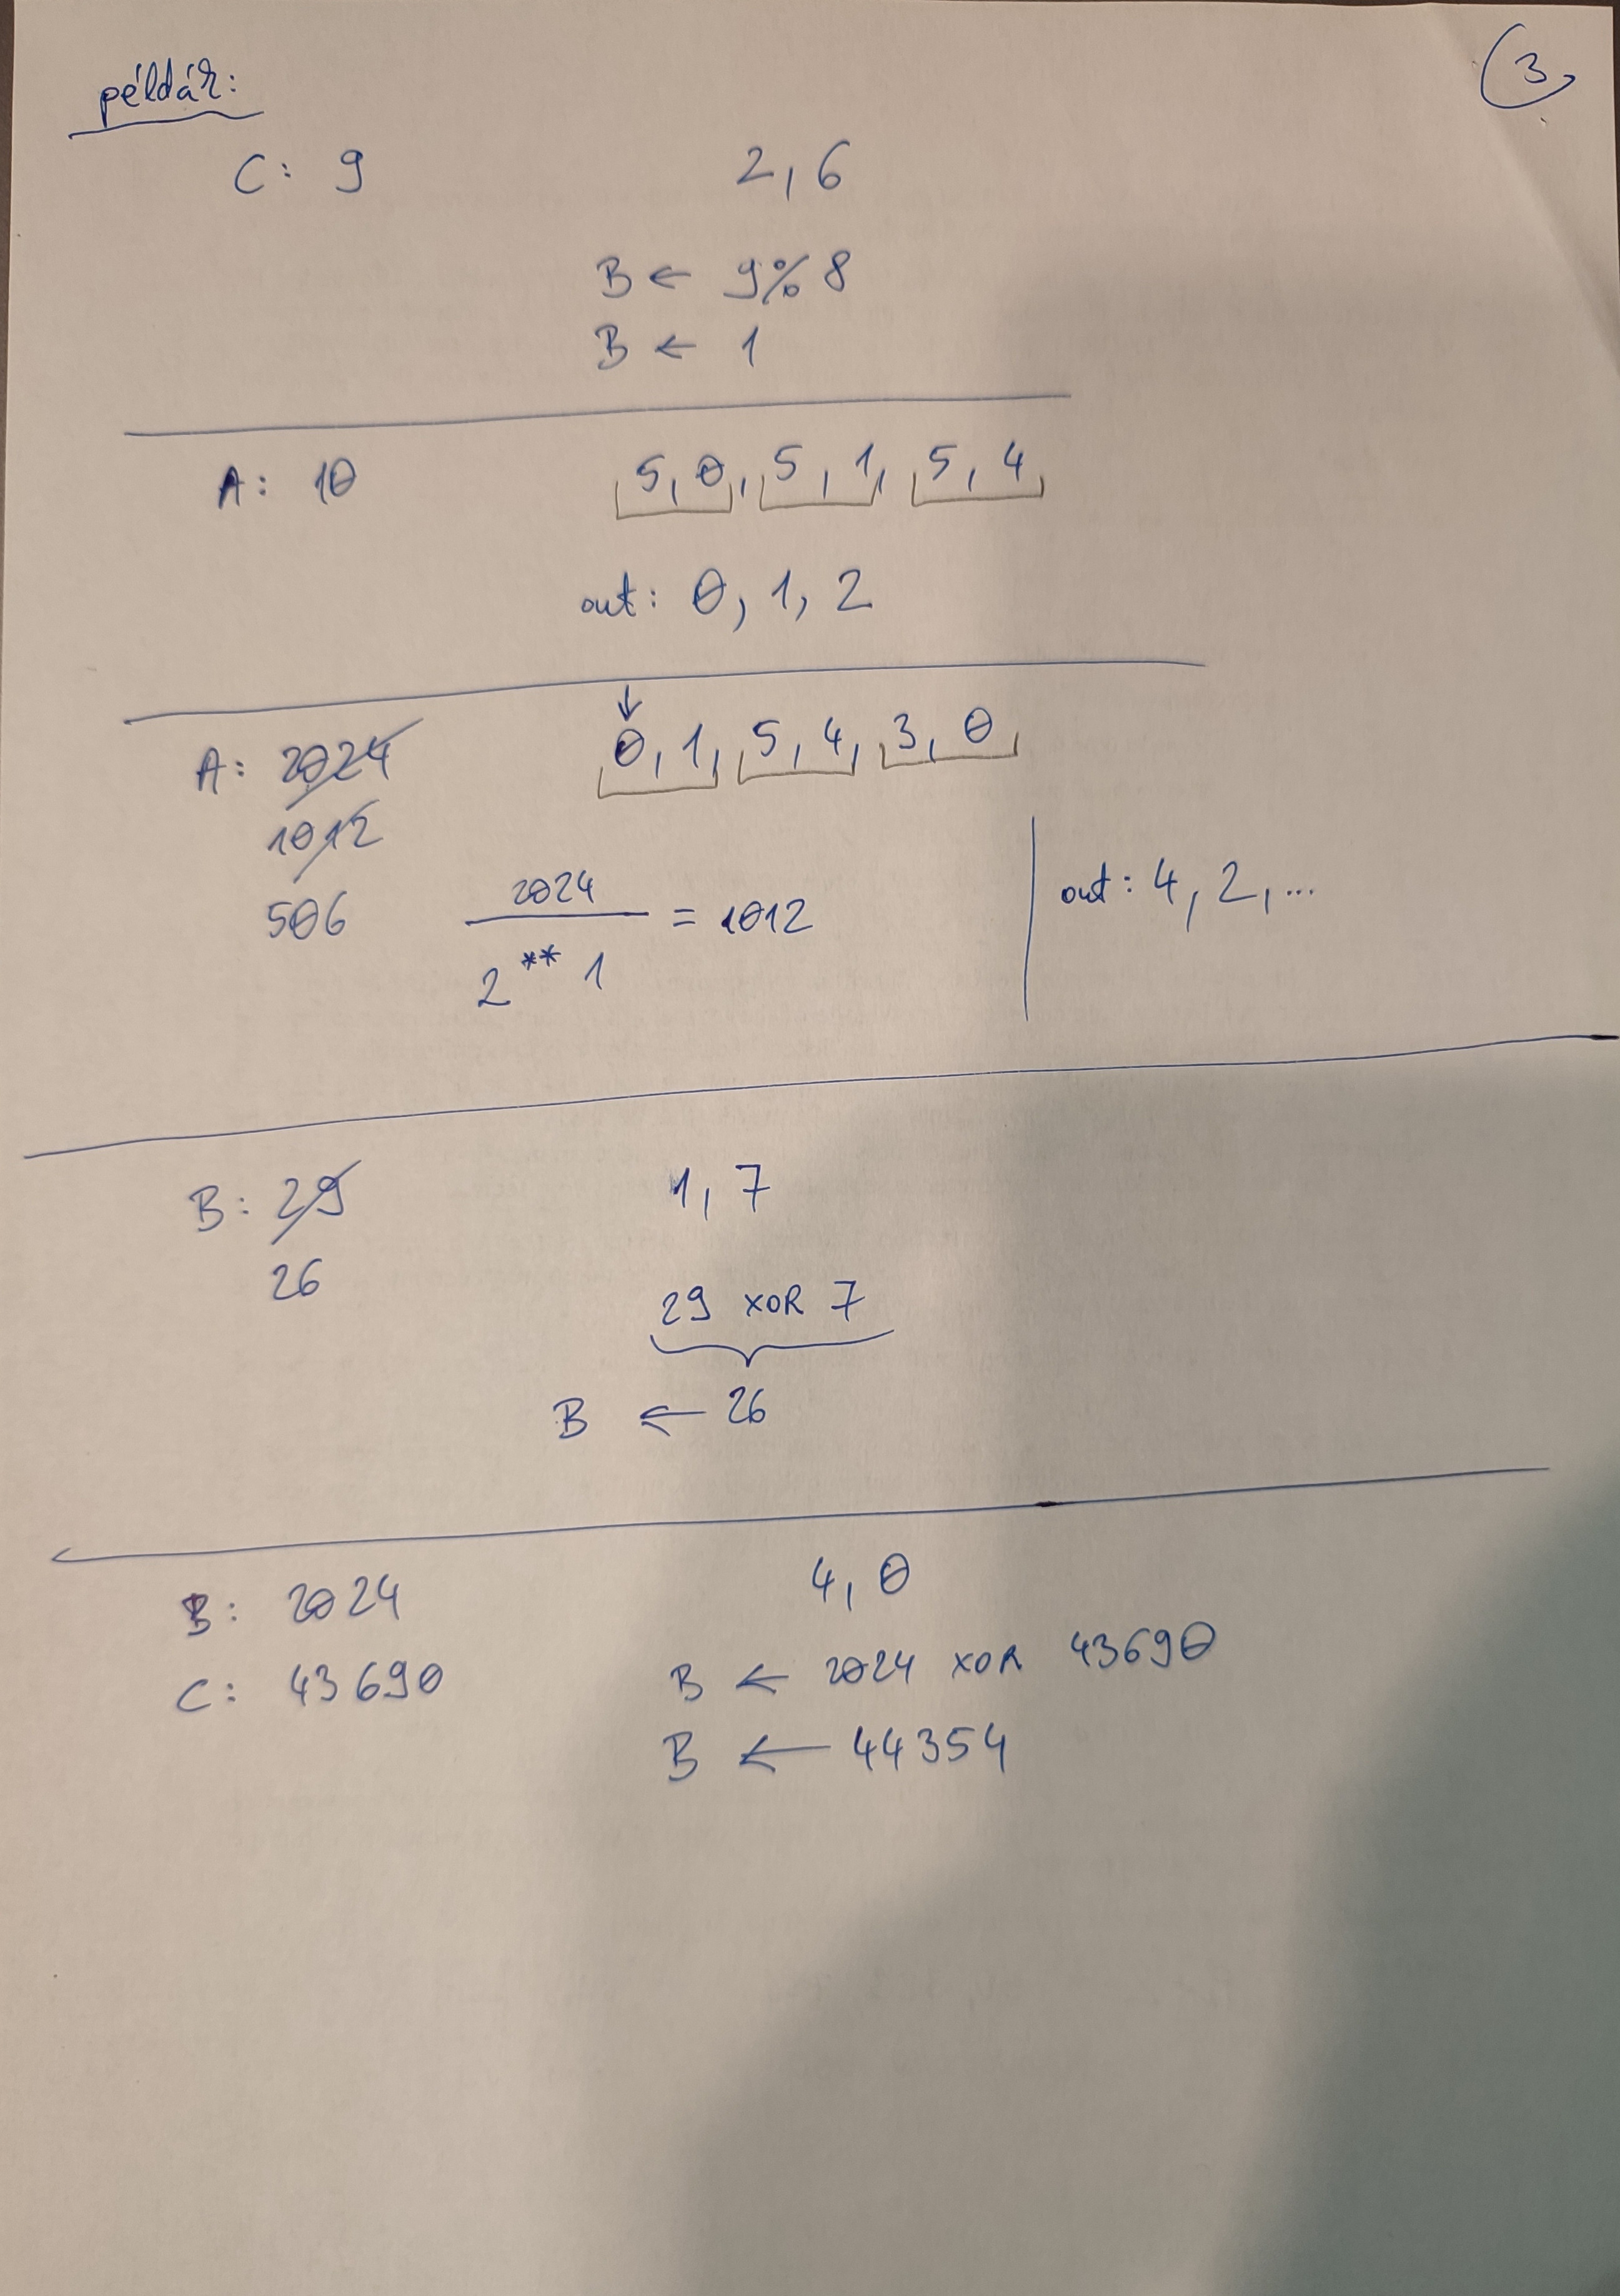 példák:
3,
C: 9
2, 6
B ← 9%8
B ← 1
A: 10
5, 0, 5, 1, 5, 4
out: 0, 1, 2
↓
A: 2024
0, 1, 5, 4, 3, 0
1012
506
2024
2 ** 1
= 1012
out: 4, 2, ...
B: 29
1, 7
26
29 XOR 7
B ← 26
B: 2024
4, 0
C: 43690
B ← 2024 XOR 43690
B ← 44354